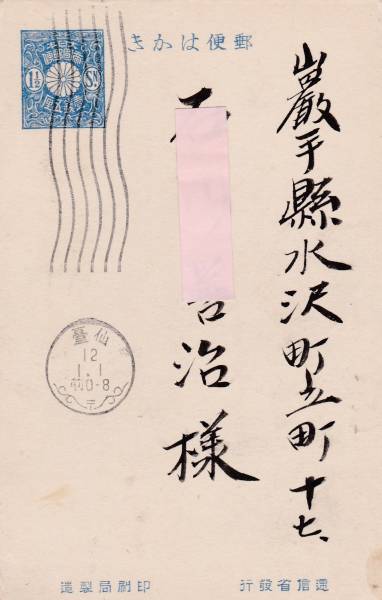 郵便はかき
大日本帝國郵便
1½ SN.
壹錢五厘
巖手縣水沢町立町十七、
治様
仙臺
12
1.1
前0-8
〒
印刷局製造
逓信省發行